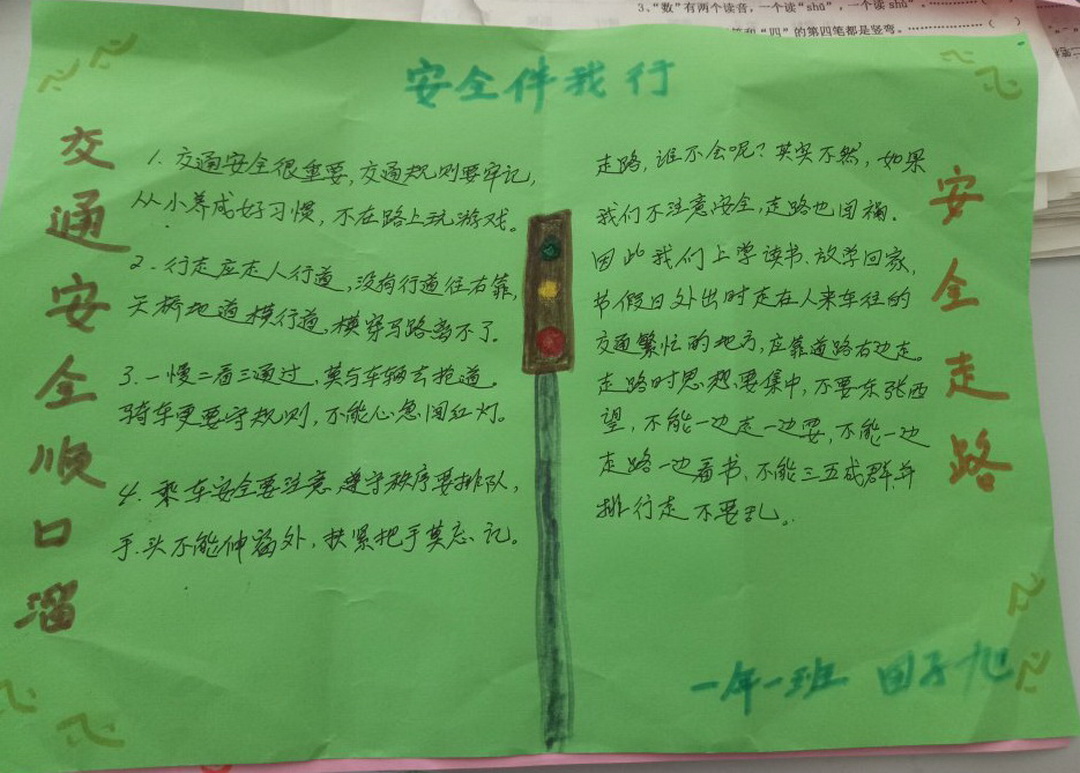 3、“数”有两个读音，一个读“shǔ”，一个读shù
“四”的第四笔都是竖弯。……………（ ）
安全伴我行
交通安全顺口溜
1. 交通安全很重要，交通规则要牢记，
从小养成好习惯，不在路上玩游戏。
2. 行走应走人行道，没有行道往右靠，
天桥地道横行道，横穿马路离不了。
3. 一慢二看三通过，莫与车辆去抢道。
骑车更要守规则，不能心急闯红灯。
4. 乘车安全要注意，遵守秩序要排队，
手、头不能伸窗外，扶紧把手莫忘记。
安全走路
走路，谁不会呢？其实不然，如果
我们不注意安全，走路也闯祸.
因此我们上学读书、放学回家，
节假日外出时走在人来车往的
交通繁忙的地方，应靠道路右边走。
走路时思想要集中，不要东张西
望，不能一边走一边耍，不能一边
走路一边看书、不能三五成群并
排行走不要乱。
一年一班 田子旭